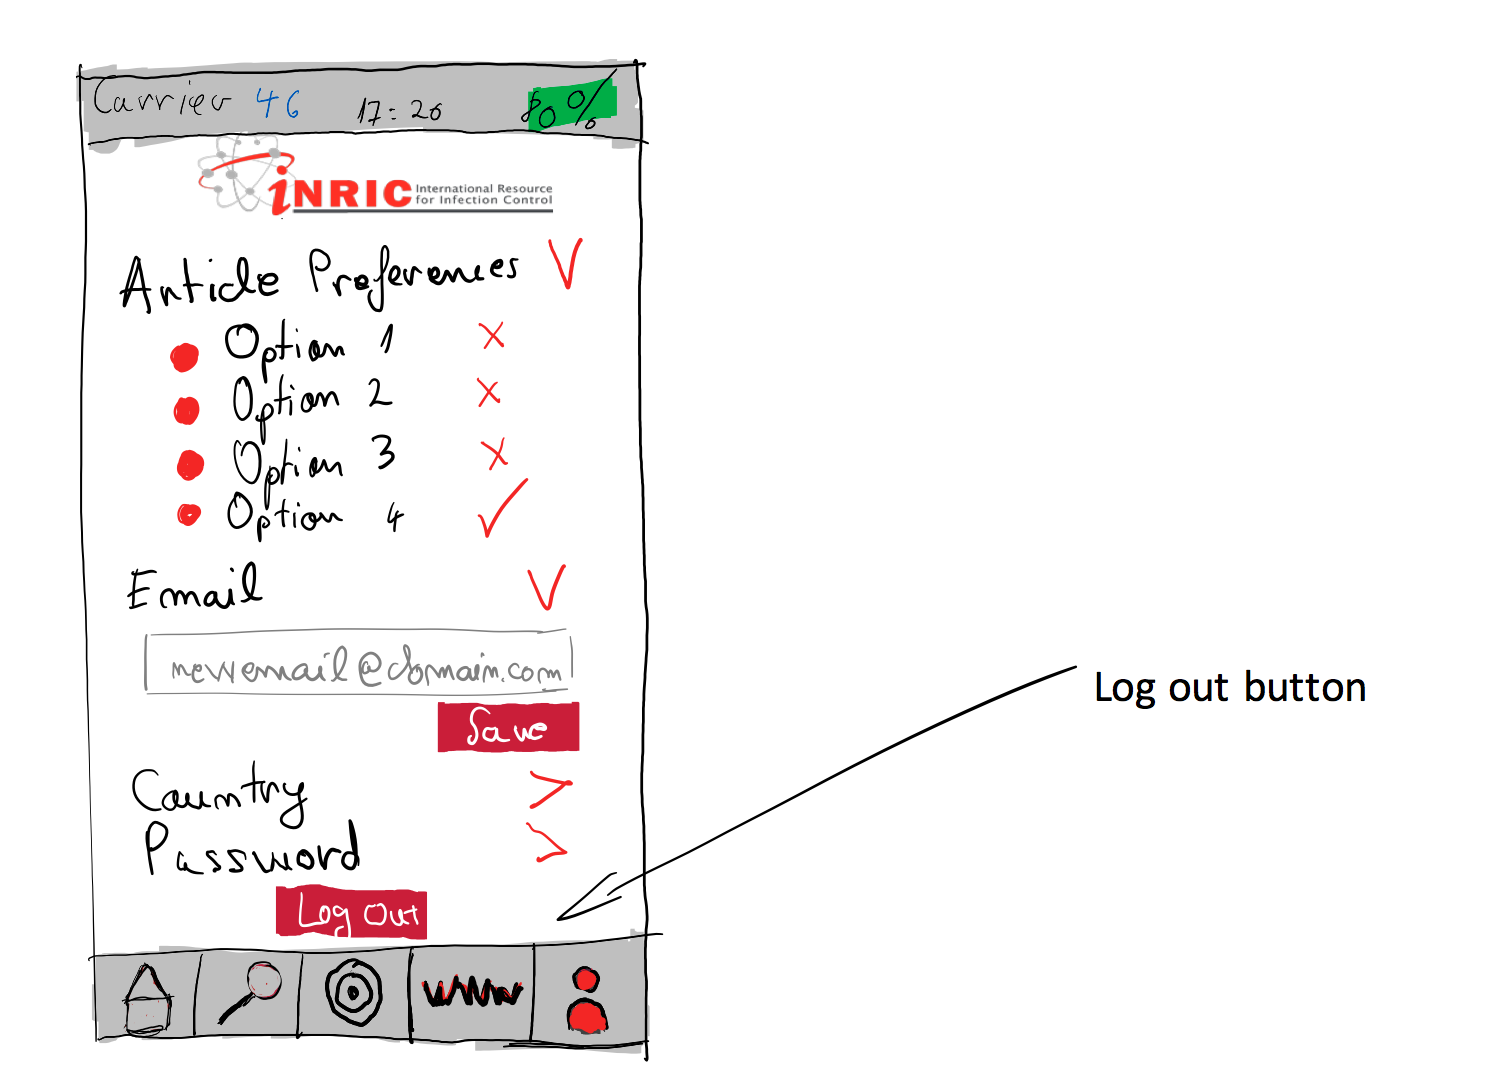 Carrier 4G 17:26 80%
iNRIC International Resource
for Infection Control
Article Preferences V
Option 1 X
Option 2 X
Option 3 X
Option 4
Email V
newemail@domain.com
Save
Log out button
Country >
Password >
Log Out
www